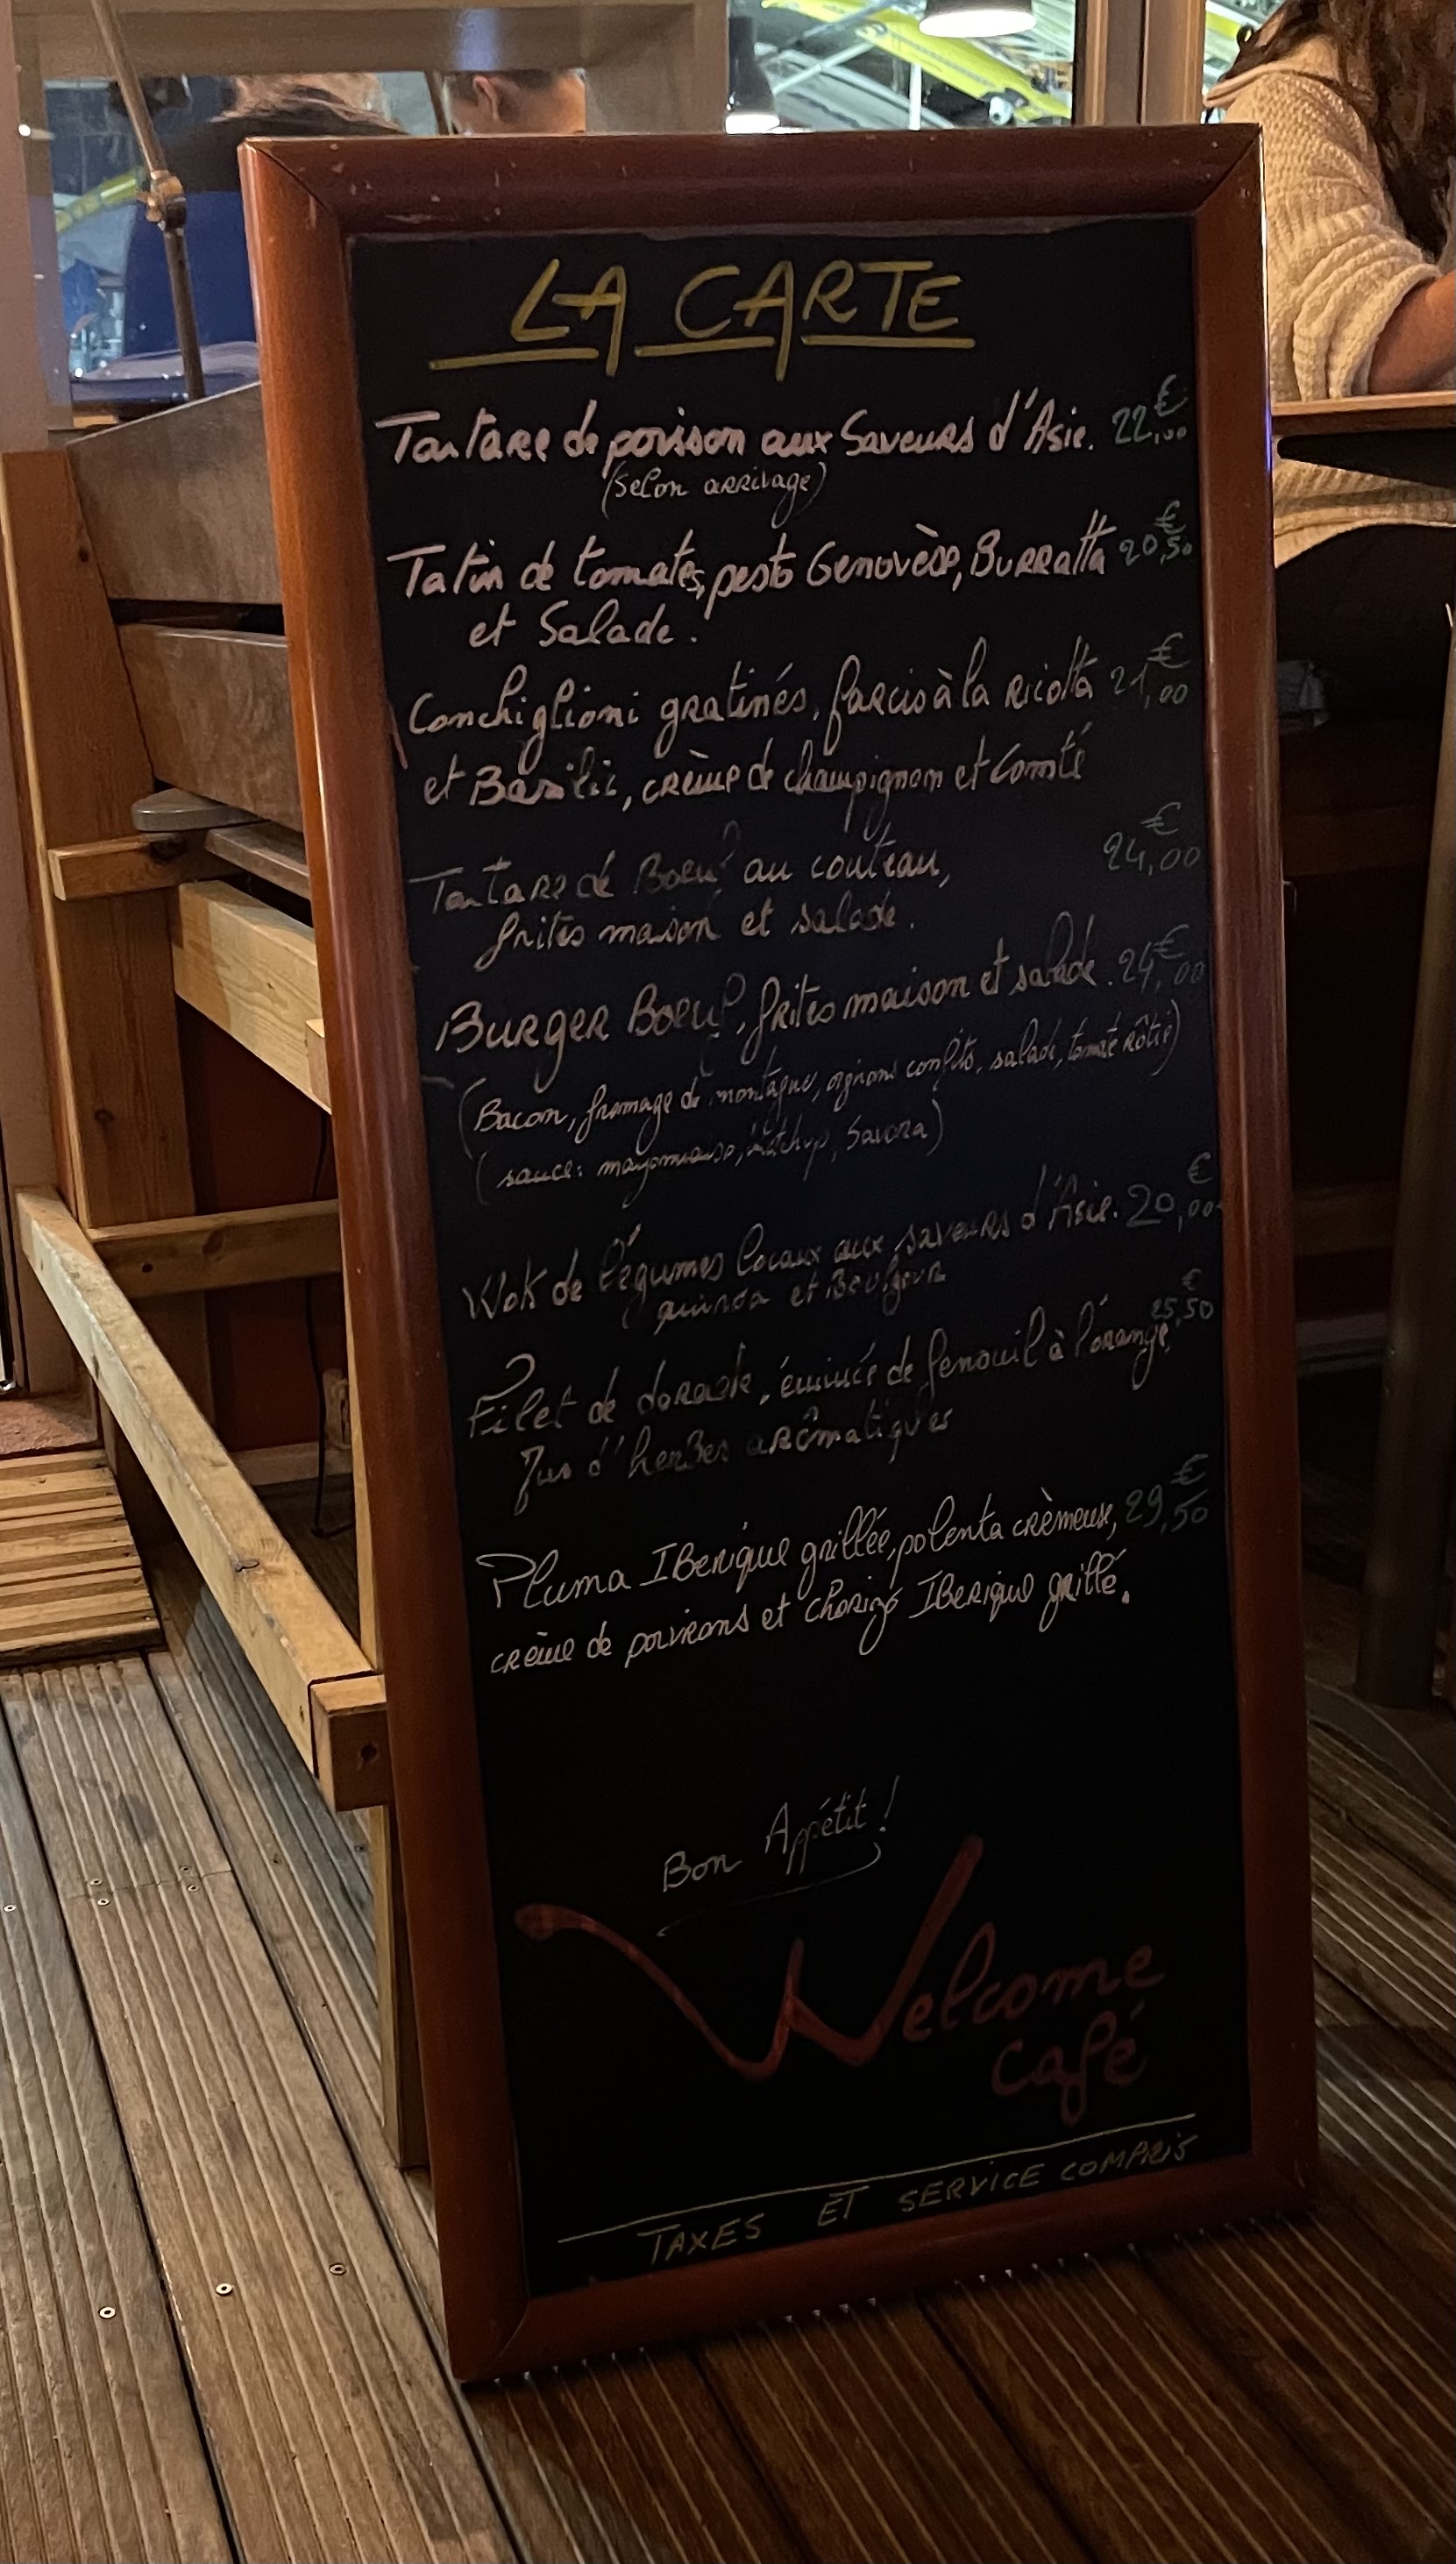 LA CARTE
Tartare de poisson aux Saveurs d'Asie. 22,00€
(selon arrivage)
Tatin de tomates, pesto Genovèse, Burratta 20,50€
et Salade.
Conchiglioni gratinés, farcis à la Ricotta 21,00€
et Basilic, crème de champignon et Comté
Tartare de Boeuf au couteau, 24,00€
frites maison et salade.
Burger Boeuf, frites maison et salade. 24,00€
(Bacon, fromage de montagne, oignons confits, salade, tomate rôtie)
(sauce: mayonnaise, ketchup, Savora)
Wok de légumes locaux aux saveurs d'Asie. 20,00€
quinoa et Boulgour
Filet de dorade, émincé de fenouil à l'orange, 25,50€
Jus d'herbes arômatiques
Pluma IBerique grillée, polenta crèmeuse, 29,50€
crème de poivrons et chorizo IBerique grillé.
Bon Appétit !
Welcome
Café
TAXES ET SERVICE COMPRIS